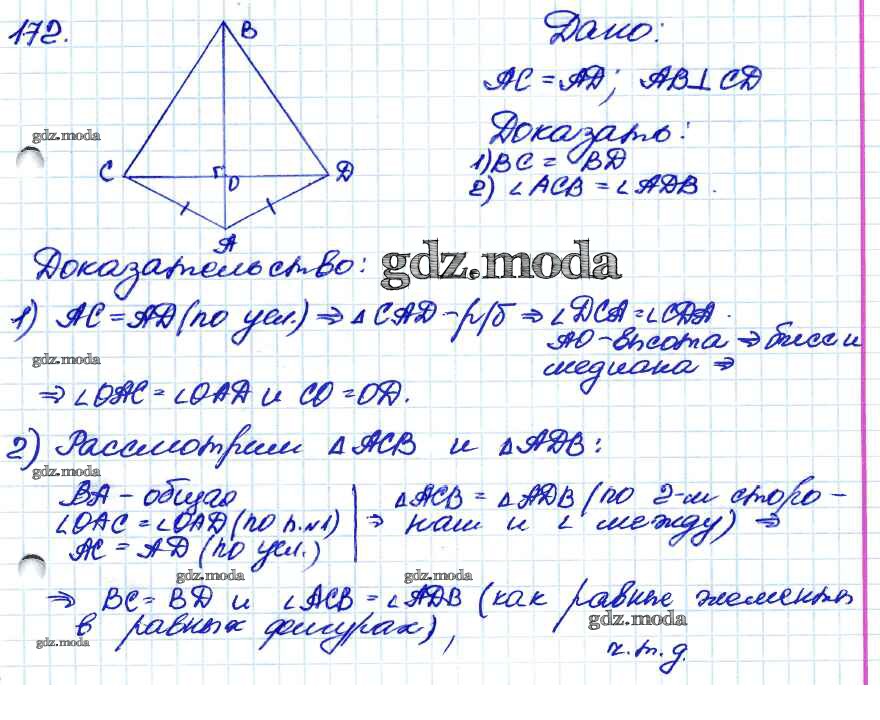 172.
B
Дано:
AC = AD; AB⊥CD
gdz.moda
Доказать:
1) BC = BD
C
O
D
2) ∠ACB = ∠ADB.
A
Доказательство:
gdz.moda
1) AC = AD (по усл.) ⇒ △CAD - р/б ⇒ ∠DCA = ∠CDA.
AO - высота ⇒ бисс и
gdz.moda
медиана ⇒
⇒ ∠OAC = ∠OAD и CO = OD.
2) Рассмотрим △ACB и △ADB:
gdz.moda
BA - общая
∠OAC = ∠OAD (по п.№1)
AC = AD (по усл.)
⇒ △ACB = △ADB (по 2-м сторо-
нам и ∠ между) ⇒
gdz.moda
gdz.moda
⇒ BC = BD и ∠ACB = ∠ADB (как равные элементы
gdz.moda
в равных фигурах),
gdz.moda
ч.т.д.